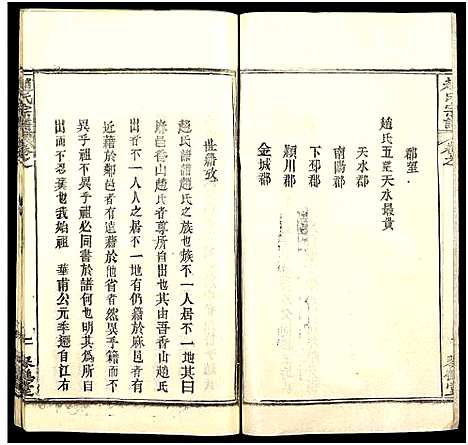 趙氏宗譜
郡望
趙氏五望天水最貴
天水郡
南陽郡
下邳郡
潁川郡
金城郡
世籍攷
趙氏譜譜趙氏之族也族不一人人居不一地其曰
麻邑者香山趙氏者尊所自出也其由吾香山趙氏
出而不一人人居不一地有仍籍於麻邑者有
近籍於鄰邑者有遠籍於他省者然異乎籍而不
異乎祖不異乎祖必同書於譜何也明其為所曰
出而不忍棄也我始祖 華甫公元季遷自江右
趙氏宗譜
琴鶴堂